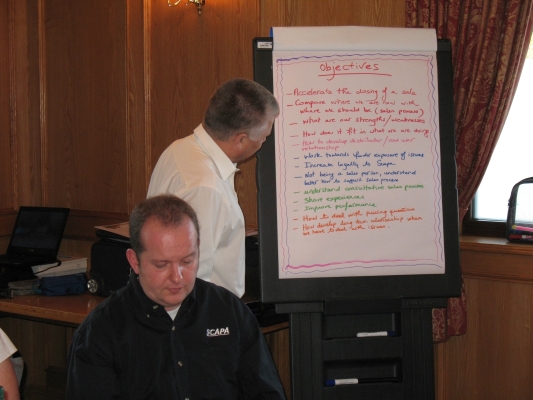 Objectives
- Accelerate the closing of a sale
- Compare where we are now with
where we should be (sales process)
- What are our strengths/weaknesses
- How does it fit in what we are doing
- How to develop distributor/end user
relationship
- Work towards greater exposure of issues
- Increase loyalty to Scapa
- Not being a sales person, understand
better how to support sales process
- understand consultative sales process
- Share experiences
- Improve performance
- How to deal with pricing questions
- How develop long term relationship when
we have to deal with issues.
SCAPA